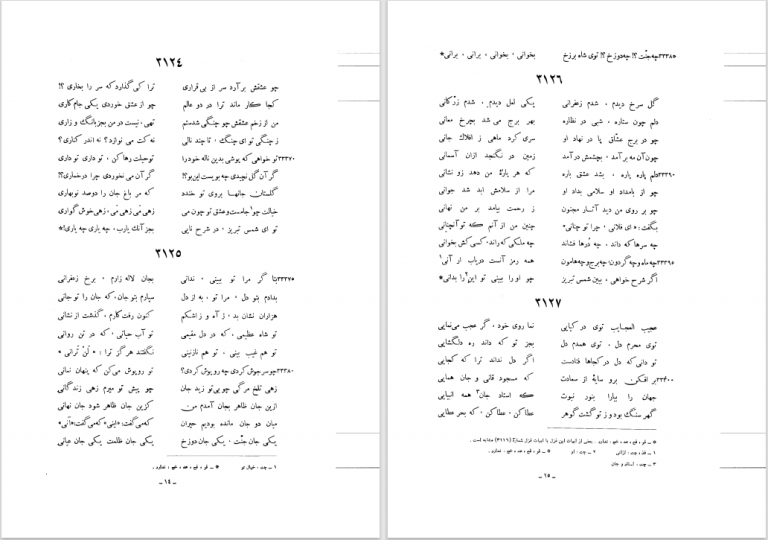 ۲۱۲۴
چو عشقش برآرد سر از بی‌قراری ترا کی گذارد که سر را بخاری ؟!
کجا کار ماند ترا در دو عالم چو از عشق خوردی یکی جام کاری
من از زخم عشقش چو چنگی شدستم تهی، نیست در من بجز بانگ و زاری
ز چنگی تو ای چنگ، تا چند نالی نه کت می نوازد؟ نه اندر کناری ؟
۲۲۳۷۰ تو خواهی که پوشی بدین ناله خود را تو حیلت رها کن، تو داری تو داری
گر آن گل نچیدی چه بویست این بو؟! گر آن می نخوردی چرا در خماری؟!
گلستان جانها بروی تو خندد که مر باغ جان را دوصد نوبهاری
خیالت چو۱ جامست و عشق تو چون می زهی می، زهی می، زهی خوش گواری
تو ای شمس تبریز ، در شرح نایی بجز آنک یارب، چه یاری چه یاری؟*
۲۱۲۵
۲۲۳۷۵ تا گر مرا تو ببینی ، ندانی بجان لاله زارم ، برخ زعفرانی
بدادم بتو دل ، مرا تو ، به از دل سپارم بتو جان، که جان را تو جانی
هزاران نشان بد ، ز آه و ز اشکم کنون رفت کارم، گذشت از نشانی
تو شاه عظیمی، که در دل مقیمی تو آب حیاتی ، که در تن روانی
تو هم غیب بینی ، تو هم نازنینی نگفتند هرگز ترا : « لن ترانی »
۲۲۳۸۰ چو سرجوش کردی چه روپوش کردی؟ تو روپوش می‌کن که پنهان نمانی
زهی تلخ مرگی چو بی‌تو زید جان چو پیش تو میرم زهی زندگانی
ازین جان ظاهر بجان آمدم من کزین جان ظاهر شود جان نهانی
میان دو جان مانده بودیم حیران که می‌گفت: «اینی» که می‌گفت: «آنی»
یکی جان جنت ، یکی جان دوزخ یکی جان ظلمت یکی جان عیانی
۱ ـ چت ، خیال تو * ـ قو ، قح ، عد ، خج ، ندارد .
ـ ۱۴ ـ
چه جنت ؟! چه دوزخ ؟! توی شاه برزخ بخوانی ، بخوانی ، برانی ، برانی*
۲۱۲۶
گل سرخ دیدم ، شدم زعفرانی یکی لعل دیدم ، شدم زرکانی
دلم چون ستاره ، شبی در نظاره بهر برج می شد بچرخ معانی
چو در برج عشاق پا در نهاد او سری کرد ماهی ز افلاک جانی
چون آن مه برآمد ، بچشمش درآمد زمین در نگنجد ازان آسمانی
۲۲۳۹۰ دلم پاره پاره ، بشد عشق باره که هر پارهٔ من دهد زو نشانی
چو از بامداد او سلامی بداد او مرا از سلامش ابد شد جوانی
چو بر روی من دید آثار مجنون ز رحمت بیامد بر من نهانی
بگفت: «ای فلانی ، چرا تو چنانی» چنین من از آنم که تو آنچنانی
چه سرها که داند ، چه درها فشاند چه ملکی که راند، کسی کش بخوانی
۲۲۳۹۵ چه ماه و چه گردون، چه برج و چه هامون همه رمز آنست دریاب ار آنی۱
اگر شرح خواهی ، ببین شمس تبریز چو او را ببینی تو این۲ را بدانی*
۲۱۲۷
عجیب العجایب توی در کیایی نما روی خود ، گر عجب می‌نمایی
توی محرم دل ، توی همدم دل بجز تو که داند ره دلگشایی
تو دانی که دل در کجاها فتادست اگر دل نداند ترا که کجایی
۲۲۴۰۰ برافکن برو سایهٔ از سعادت که مسجود قافی و جان همایی
جهان را بیارا بنور نبوت که استاد جان۳ همه انبیایی
گهر سنگ بود و ز تو گشت گوهر عطا کن ، عطا کن، که بحر عطایی
* ـ قو ، قح ، عد ، خج ، ندارد . بعضی از ابیات این غزل با ابیات غزل شمارهٔ (۳۱۱۶) مشابه است .
۱ ـ فذ، چت ، ازانی ۲ ـ چت ، او * ـ قو ، قح ، عد ، خج ، ندارد .
۳ ـ چت ، استاد و جان
ـ ۱۵ ـ